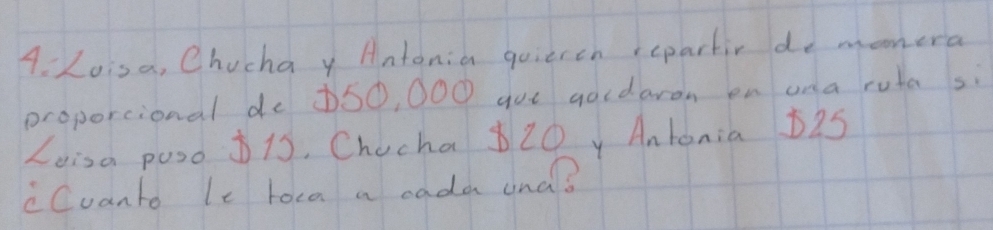 4. Luisa, Chucha y Antonia quieren repartir de manera
proporcional de $50,000 que quedaron en una rifa si
Luisa puso $15. Chucha $20 y Antonia $25
¿Cuanto le toca a cada una?